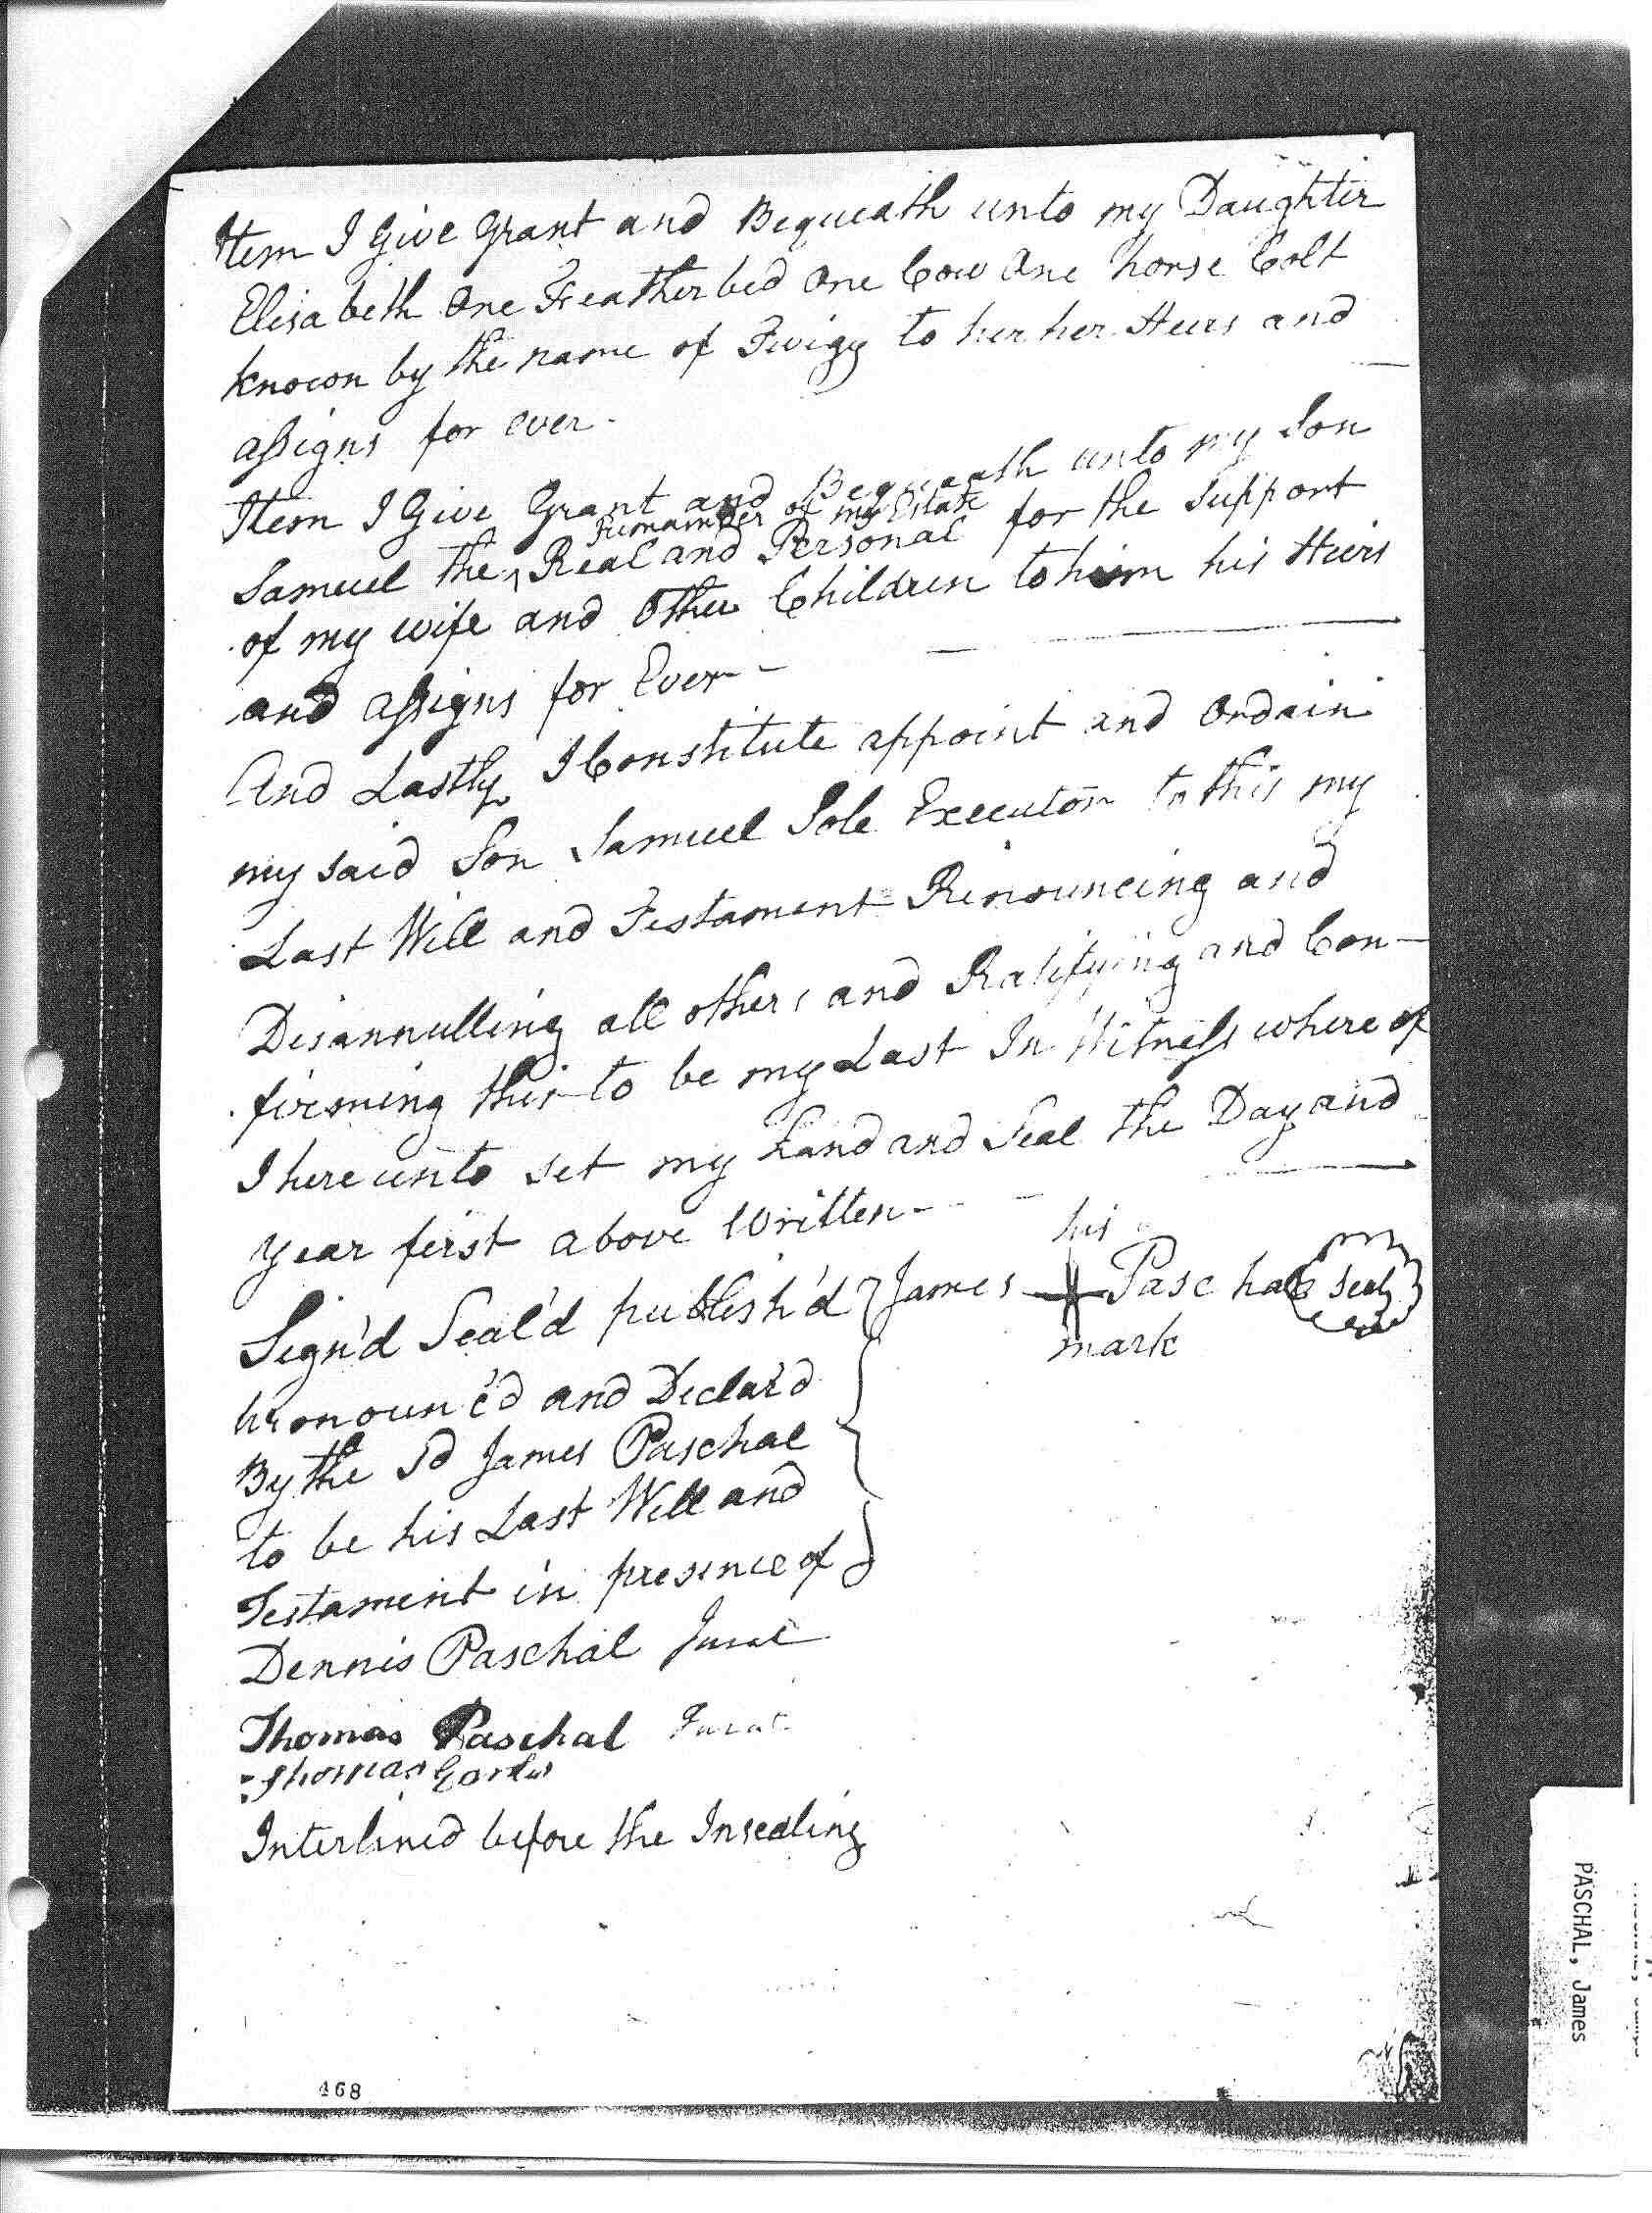 Item I Give Grant and Bequeath unto my Daughter
Elisabeth One Featherbed One Cow One horse Colt
known by the name of Twigg to her her Heirs and
assigns for ever.
Item I Give Grant and Bequeath unto my Son
Remainder of my Estate
Samuel the ‸ Real and Personal for the Support
of my wife and Other Children to him his Heirs
and assigns for Ever-
And Lastly I Constitute appoint and Ordain
my said Son Samuel Sole Executor to this my
Last Will and Testament Renouncing and
Disannulling all others and Ratifying and Con-
firming this to be my Last In Witness where of
I here unto set my hand and Seal the Day and
year first above Written--
his
Sign'd Seal'd publish'd James Paschal Seal
mark
pronounc'd and Declar'd
By the Sd James Paschal
to be his Last Will and
Testament in presence of
Dennis Paschal Jurat
Thomas Paschal Jurat
Thomas
Interlined before the Insealing
468
PASCHAL, James